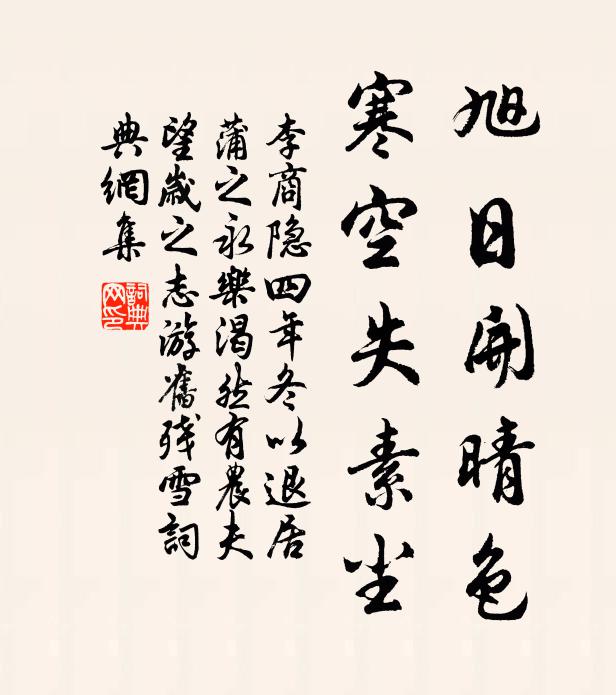 旭日開晴色
寒空失素尘
李商隐四年冬以退居
蒲之永樂渴然有農夫
望歲之志游舊残雪詞
典網集
詞典网印